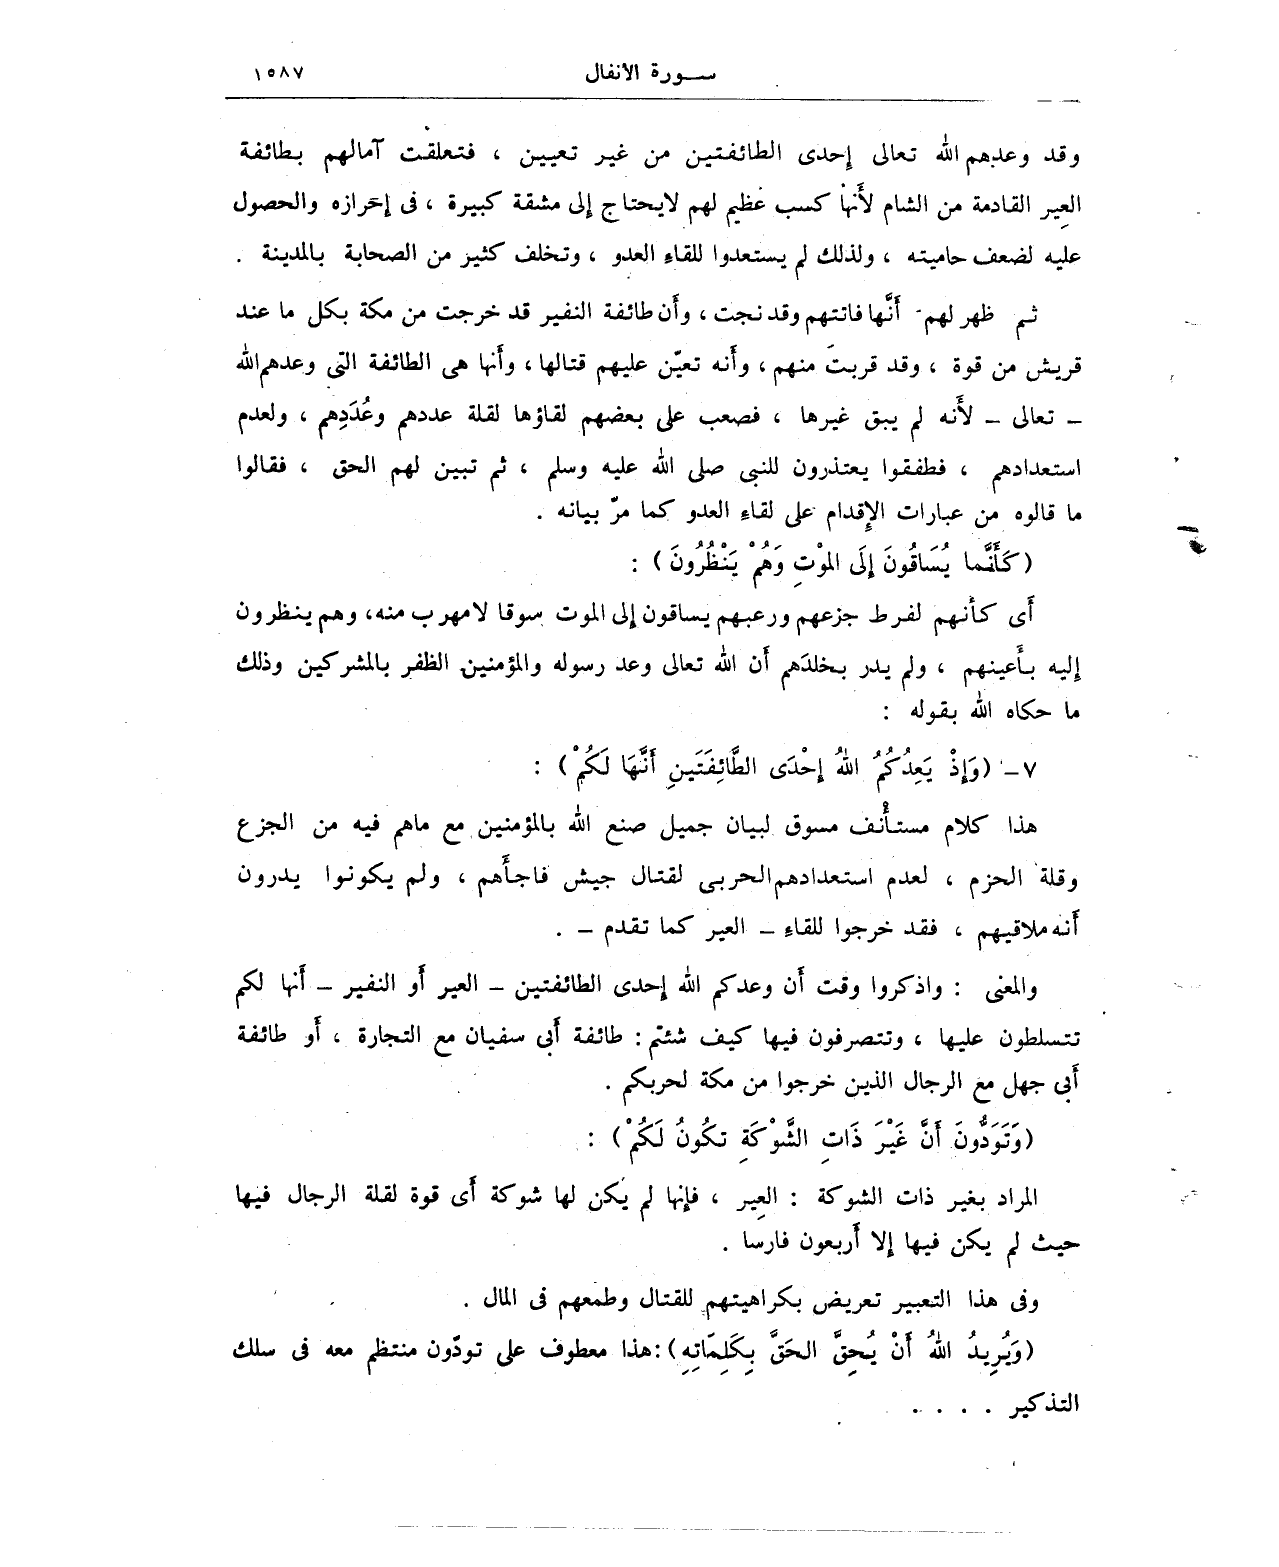 سورة الأنفال ١٥٨٧
وقد وعدهم الله تعالى إحدى الطائفتين من غير تعيين ، فتعلقت آمالهم بطائفة
العير القادمة من الشام لأَنها كسب عظيم لهم لايحتاج إلى مشقة كبيرة ، فى إحرازه والحصول
عليه لضعف حاميته ، ولذلك لم يستعدوا للقاء العدو ، وتخلف كثير من الصحابة بالمدينة .
ثم ظهر لهم أَنَّها فاتتهم وقد نجت ، وأَن طائفة النفير قد خرجت من مكة بكل ما عند
قريش من قوة ، وقد قربت منهم ، وأَنه تعيّن عليهم قتالها ، وأَنها هى الطائفة التى وعدهم الله
ــ تعالى ــ لأَنه لم يبق غيرها ، فصعب على بعضهم لقاؤها لقلة عددهم وعُدَدِهم ، ولعدم
استعدادهم ، فطفقوا يعتذرون للنبى صلى الله عليه وسلم ، ثم تبين لهم الحق ، فقالوا
ما قالوه من عبارات الإِقدام على لقاءِ العدو كما مرّ بيانه .
(كَأَنَّما يُسَاقُونَ إِلَى الموْتِ وَهُمْ يَنْظُرُونَ) :
أَى كأَنهم لفرط جزعهم ورعبهم يساقون إلى الموت سوقا لامهرب منه، وهم ينظرون
إليه بأَعينهم ، ولم يدر بخلدهم أَن الله تعالى وعد رسوله والمؤمنين الظفر بالمشركين وذلك
ما حكاه الله بقوله :
٧ــ (وَإِذْ يَعِدُكُمُ اللهُ إِحْدَى الطَّائِفَتَينِ أَنَّهَا لَكُمْ) :
هذا كلام مستأْنف مسوق لبيان جميل صنع الله بالمؤمنين مع ماهم فيه من الجزع
وقلة الحزم ، لعدم استعدادهم الحربى لقتال جيش فاجأَهم ، ولم يكونوا يدرون
أَنه ملاقيهم ، فقد خرجوا للقاءِ ــ العير كما تقدم ــ .
والمعنى : واذكروا وقت أَن وعدكم الله إحدى الطائفتين ــ العير أَو النفير ــ أَنها لكم
تتسلطون عليها ، وتتصرفون فيها كيف شئتم : طائفة أَبى سفيان مع التجارة ، أَو طائفة
أَبى جهل مع الرجال الذين خرجوا من مكة لحربكم .
(وَتَوَدُّونَ أَنَّ غَيْرَ ذَاتِ الشَّوْكَةِ تكُونُ لَكُمْ) :
المراد بغير ذات الشوكة : العير ، فإِنها لم يكن لها شوكة أَى قوة لقلة الرجال فيها
حيث لم يكن فيها إلا أَربعون فارسا .
وفى هذا التعبير تعريض بكراهيتهم للقتال وطمعهم فى المال .
(وَيُرِيدُ اللهُ أَنْ يُحِقَّ الحَقَّ بِكَلِمَاتِهِ) : هذا معطوف على تودّون منتظم معه فى سلك
التذكير . . . .